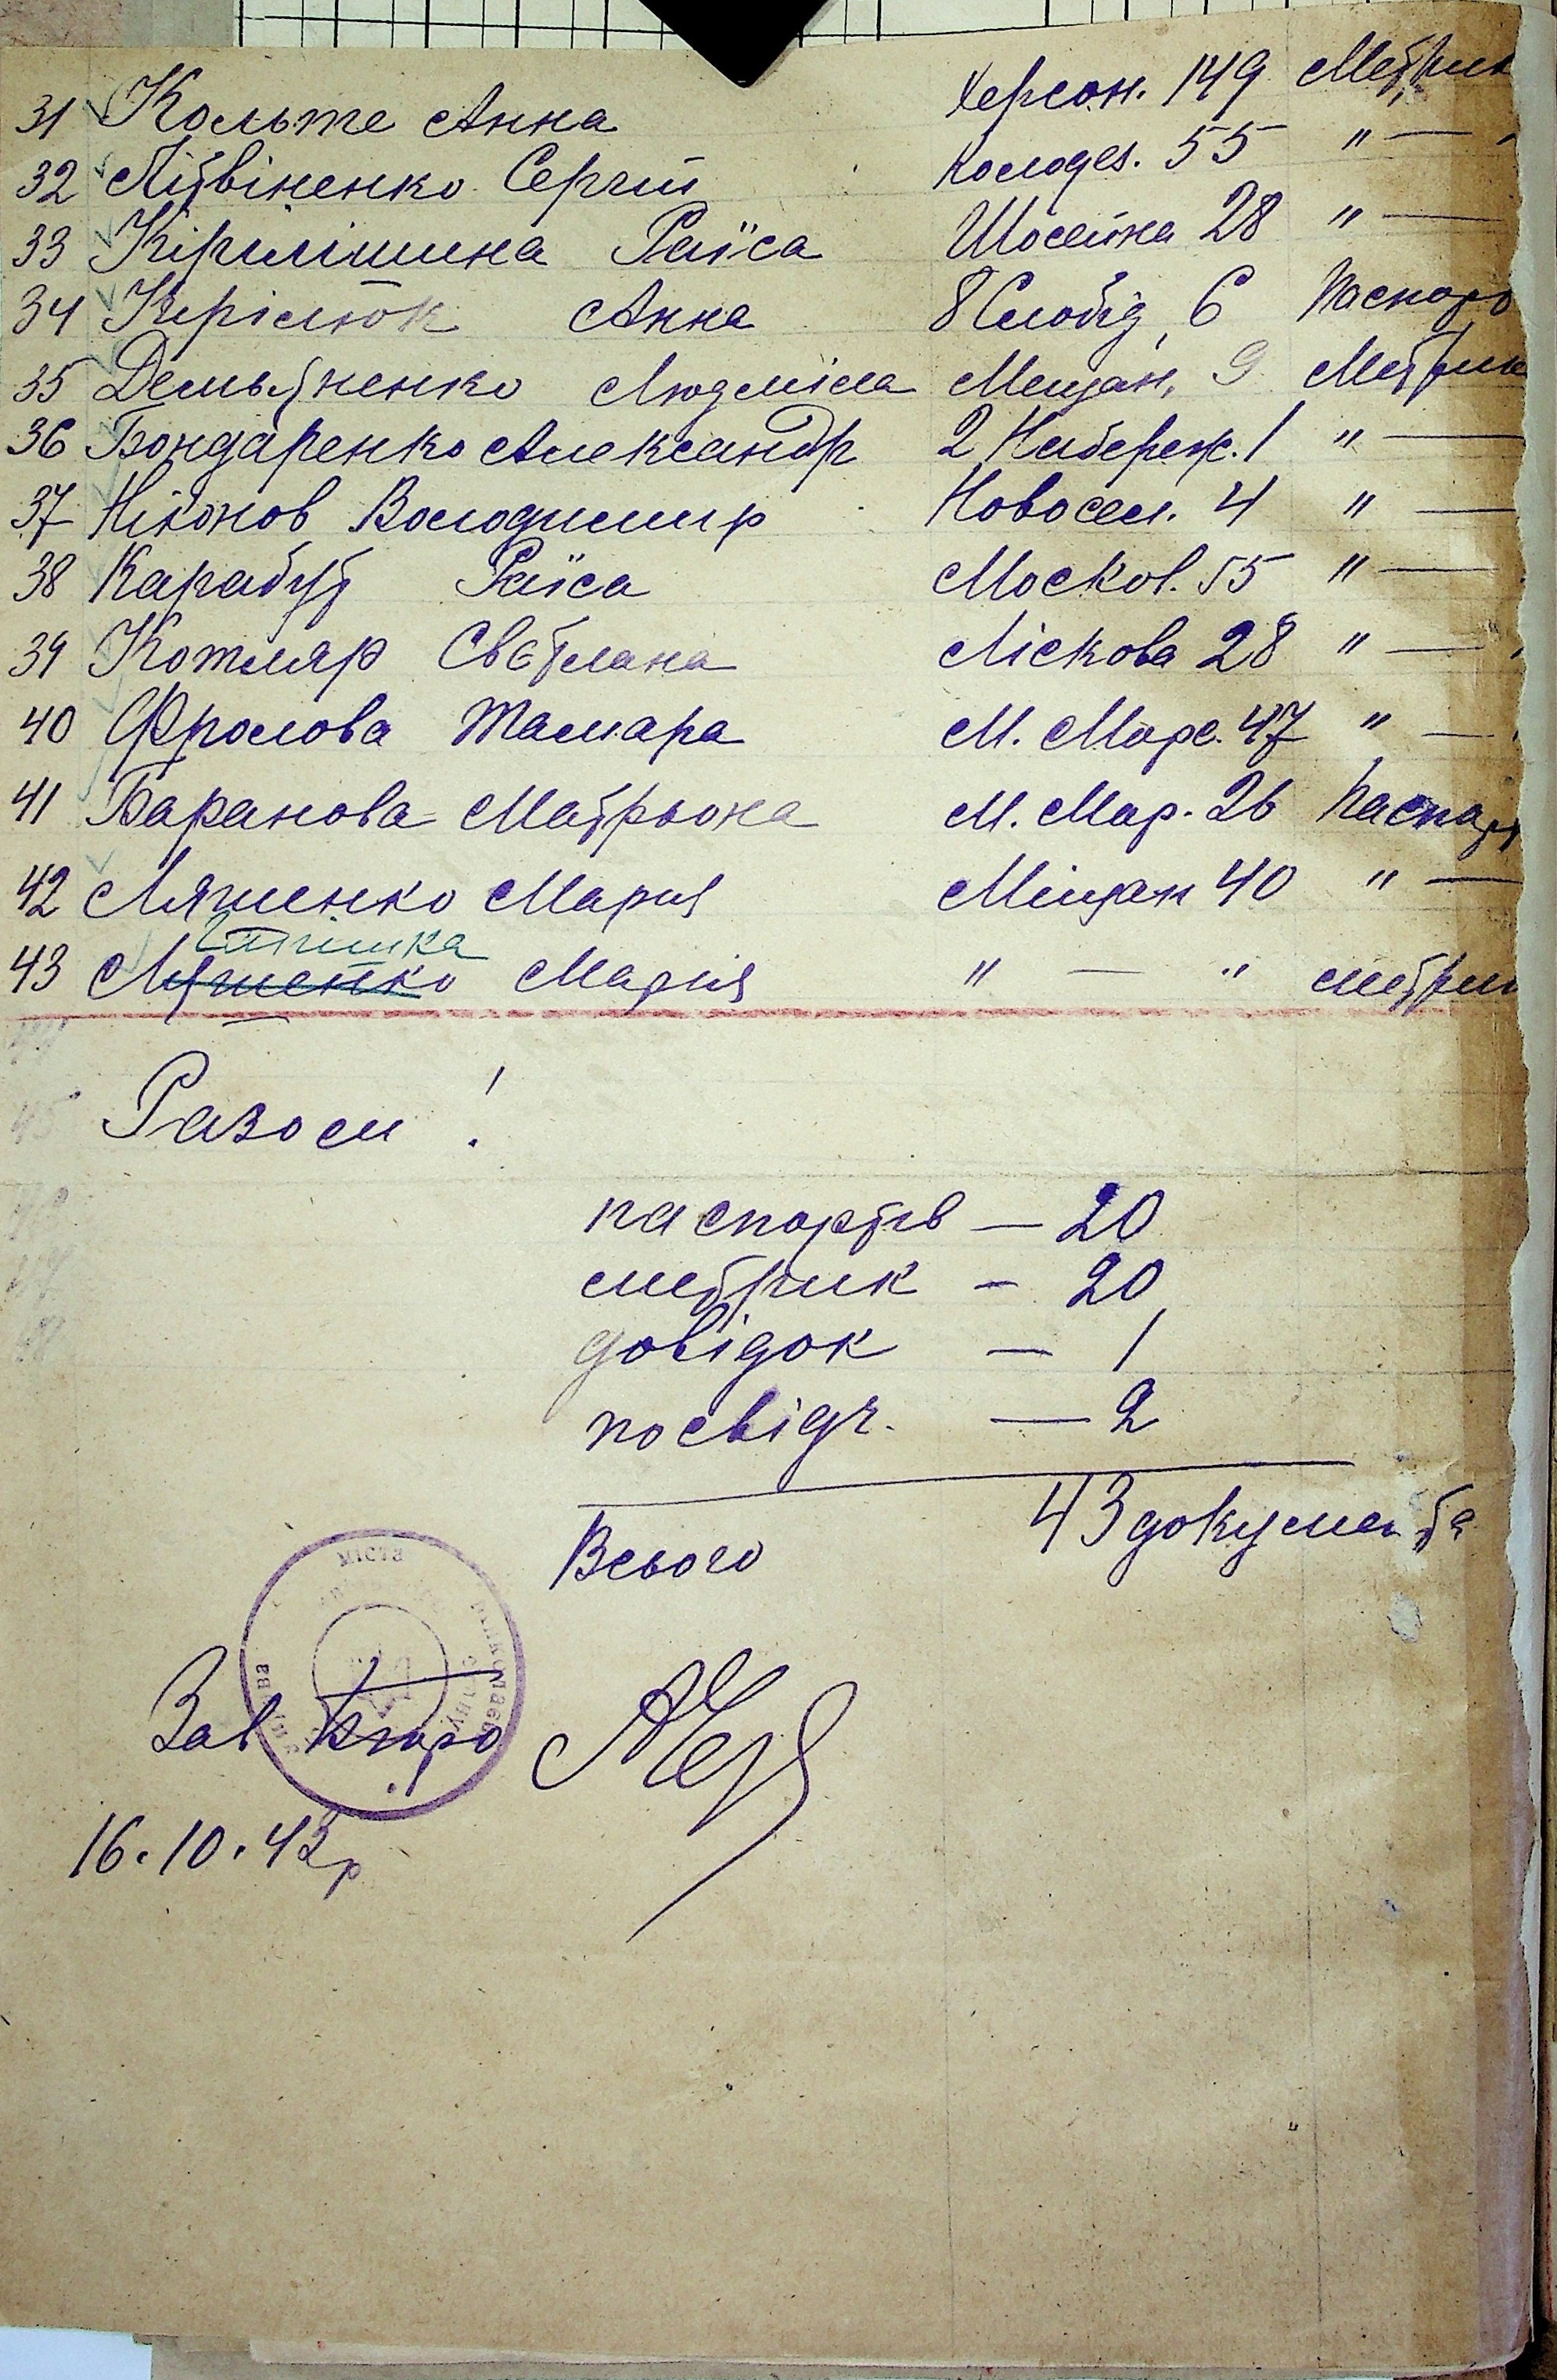 31 Кольте Анна Херсон. 149 Метрик
32 Літвіненко Сергій Колодез. 55 " —
33 Кірилішина Раїса Шосейна 28 " —
34 Кирілюк Анна 8 Слобід 6 Паспорт
35 Демьяненко Людміла Мещан. 9 Метрик
36 Бондаренко Александр 2 Набереж. 1 " —
37 Ніконов Володимир Новосел. 4 " —
38 Карабут Раїса Москов. 55 " —
39 Котляр СвєтланаЛіскова 28 " —
40 Фролова Тамара М. Морс. 47 " —
41 Баранова Матрьона М. Мор. 26 Паспорт
42 Ляшенко Мария Міщан 40 " —
43 Ляшенко Марія " — " метрик
Разом !
паспортів — 20
метрик — 20
довідок — 1
посвідч. — 2
Всього 43 документа
міста
Зав Бюро
16.10.43р